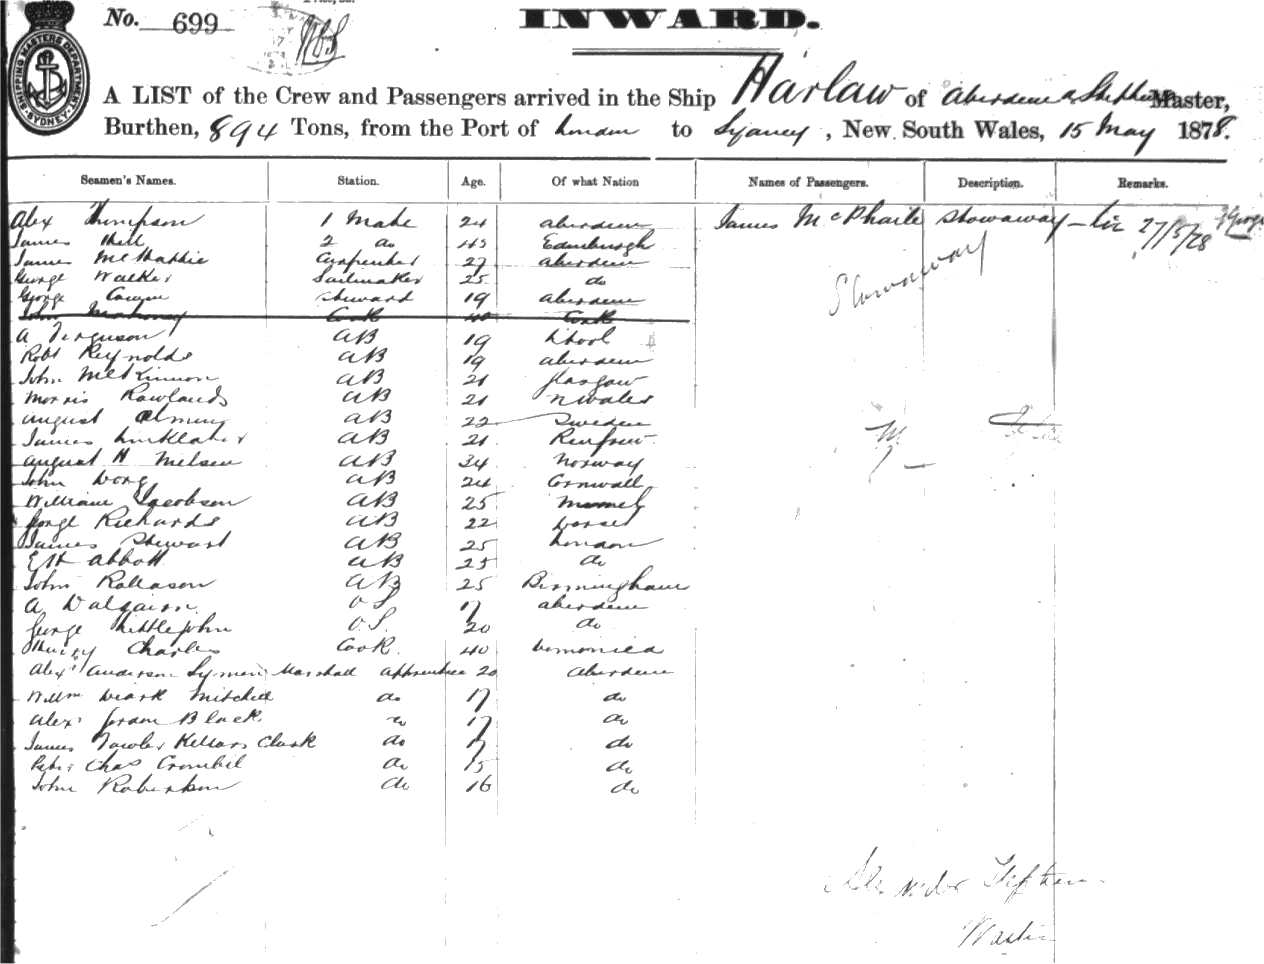 No. 699
INWARD.
SHIPPING MASTERS DEPARTMENT SYDNEY
A LIST of the Crew and Passengers arrived in the Ship Harlaw of Aberdeen A Stephen Master,
Burthen, 894 Tons, from the Port of London to Sydney, New South Wales, 15 May 1878.
Seamen's Names. Station. Age. Of what Nation Names of Passengers. Description. Remarks.
Alex Thompson 1 Mate 24 Aberdeen James McPhaile Stowaway 27/5/78
James Hill 2 do Edinburgh
James McHattie Carpenter 27 Aberdeen
George Walker Sailmaker 25 do
Stowaway
George Steward 19 Aberdeen
John Mahoney Cook 40 Cork
A Ferguson AB 19 L'pool
Robt Reynolds AB 19 Aberdeen
John McKinnon AB 21 Glasgow
Morris Rowlands AB 21 N Wales
August AB 22 Sweden
James AB 21 Renfrew
August H Nielsen AB 34 Norway
John AB 24 Cornwall
William Jacobson AB 25
George Richards AB 22 Dorset
James Stewart AB 25 London
E H Abbott AB 25 do
John Rollason AB 25 Birmingham
A Dalgairn OS 17 Aberdeen
George Littlejohn O.S. 20 do
Charles Cook 40 Dominica
Alexr Anderson Marshall Apprentice 20 Aberdeen
Willm Mitchell do 17 do
Alexr Black do 17 do
James Fowler Clark do 17 do
Peter Chas Crombie do 15 do
John Robertson do 16 do
Alexander Stephen
Master